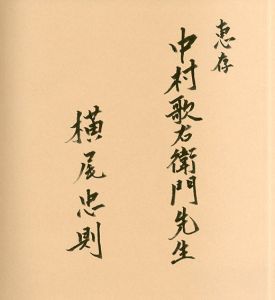 恵存
中村歌右衛門先生
横尾忠則